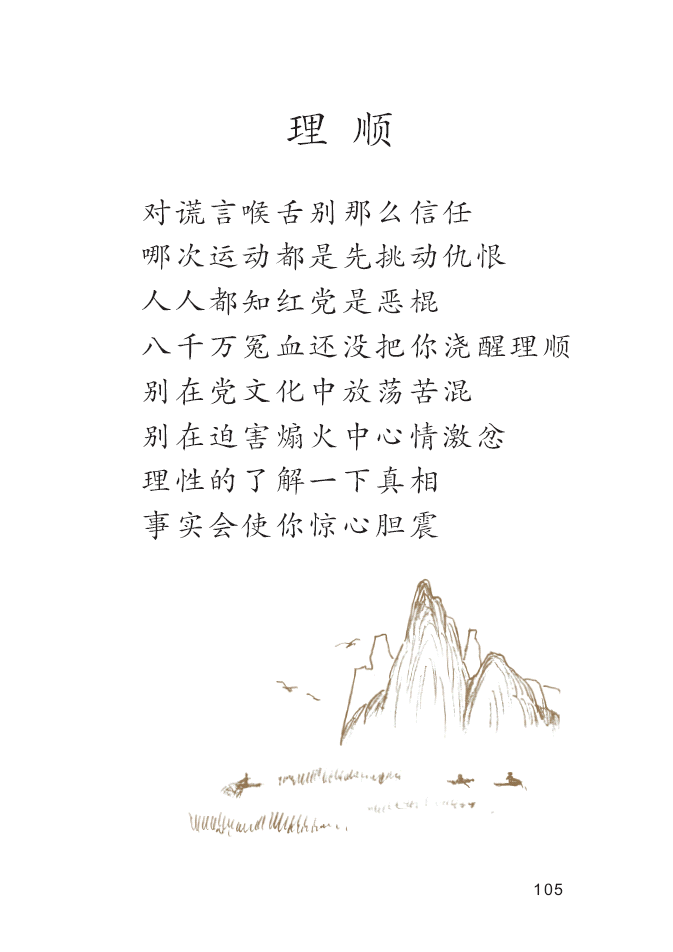 理 顺
对谎言喉舌别那么信任
哪次运动都是先挑动仇恨
人人都知红党是恶棍
八千万冤血还没把你浇醒理顺
别在党文化中放荡苦混
别在迫害煽火中心情激忿
理性的了解一下真相
事实会使你惊心胆震
105